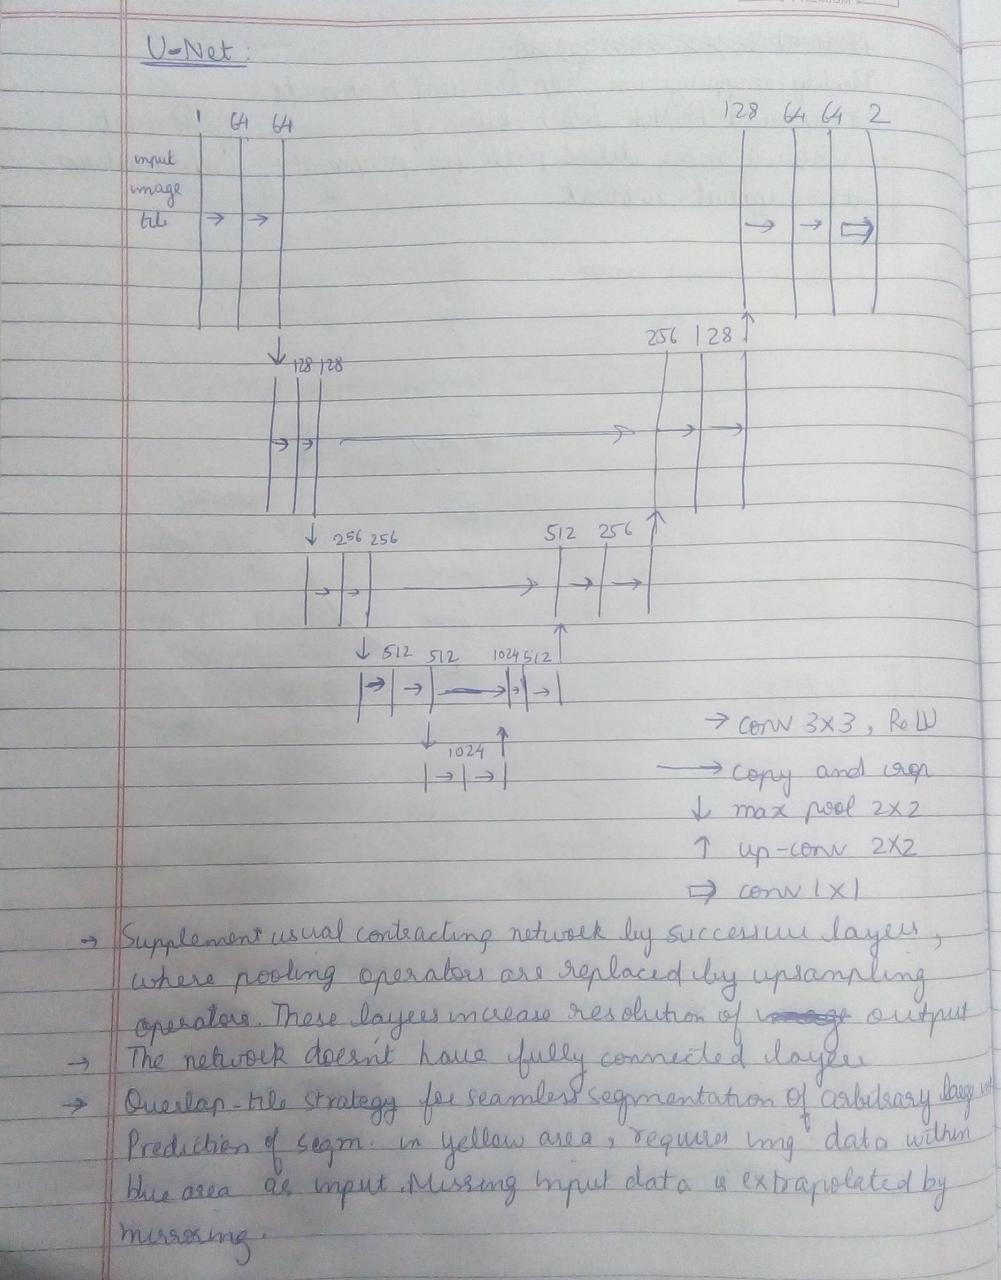 U-Net:
1 64 64 128 64 64 2
input
image
tile
256 128
128 128
256 256 512 256
512 512 1024 512
1024
→ conv 3x3, ReLU
→ copy and crop
↓ max pool 2x2
↑ up-conv 2x2
⇨ conv 1x1
→ Supplement usual contracting network by successive layers,
where pooling operators are replaced by upsampling
operators. These layers increase resolution of output
→ The network doesn't have fully connected layers
→ Overlap-tile strategy for seamless segmentation of arbitrary large
Prediction of segm. in yellow area, requires img data within
blue area as input. Missing input data is extrapolated by
mirroring.